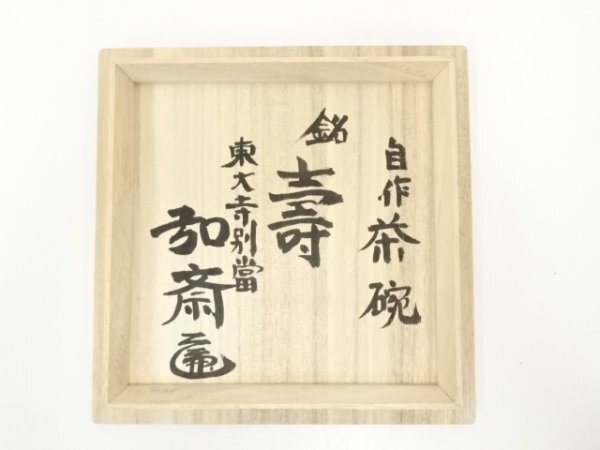 自作茶碗
銘
壽
東大寺別當
弘斎